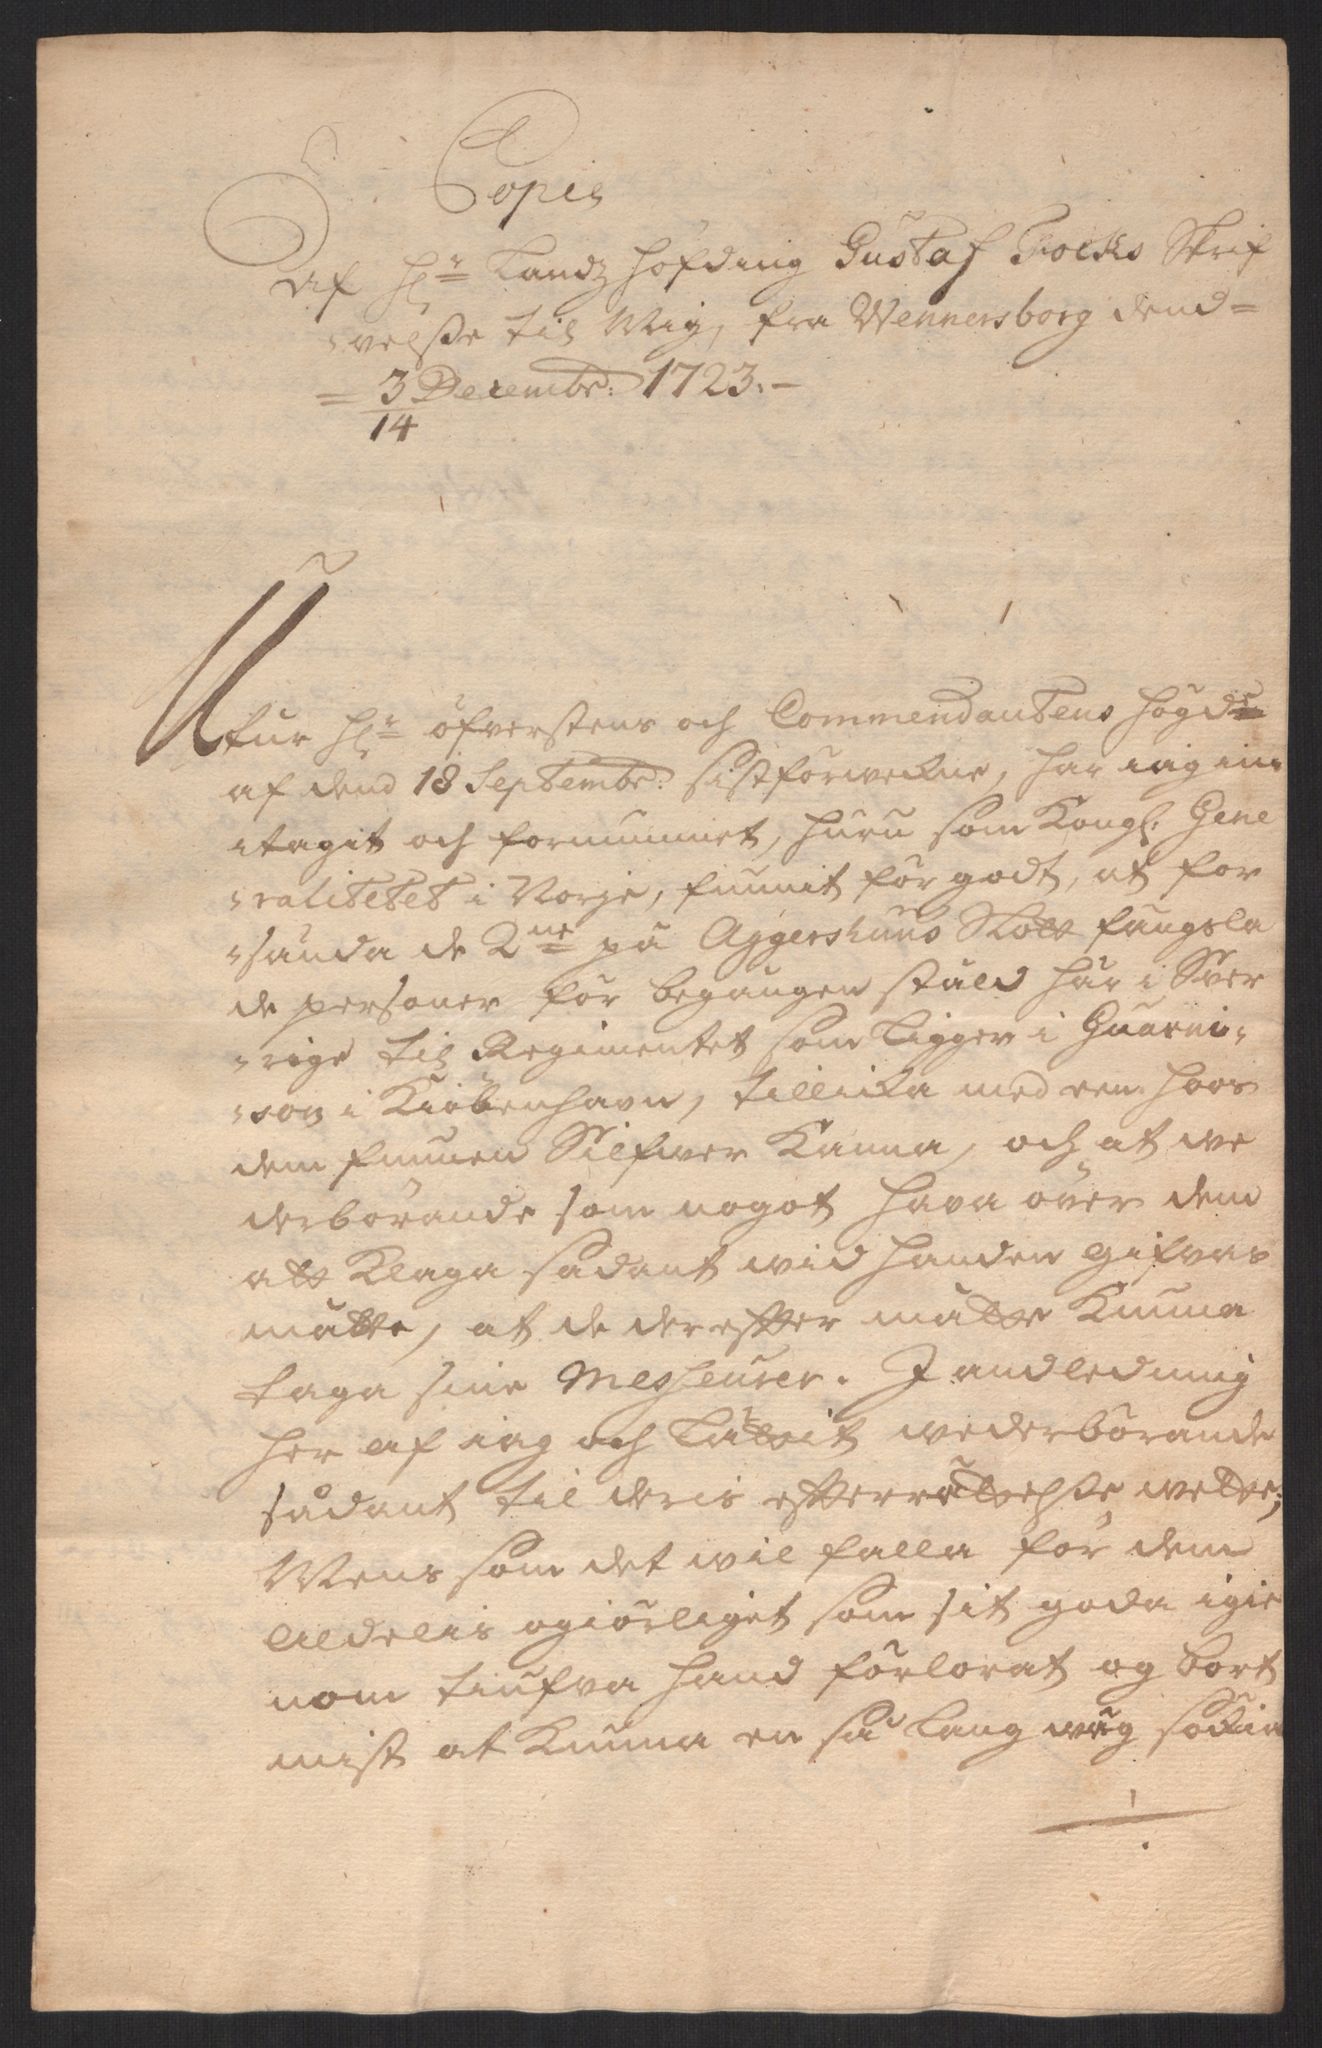 Copie
Af Hr Landz Höfding Gustaf Focks Skrif
velße til Mig, fra Wennersborg dend
3 Decembr: 1723.
14
Utur Hr öfverstens och Commendantens högd
af dend 18 Septembr: sistförwekne, har iag in
tagit och fornummet, huru som Kongl: Gene
ralitetet i Norje, funnit för godt, at for
sända de 2ne på Aggershuus Slott fängsla
de personer för begången stuld här i Sver
rige til Regimentet som ligger i Guarni
son i Kiöbenhavn, tillika med een hoos
dem funnen Silfwer Kanna, och at we
derbörande som nogot hava över dem
att Klaga sådant wid handen gifvas
måtte, at de derefter måtte Kunna
taga sine Mesheurer. I andledning
her af iag och låttit wederbörande
sådant til deris efterrättelße wette;
Mens som det wil falla för dem
aldelis ogiörliget som sit goda igie
nom tiufva hand förlorat og bort
mist at Kunna en så lang wäg sökia